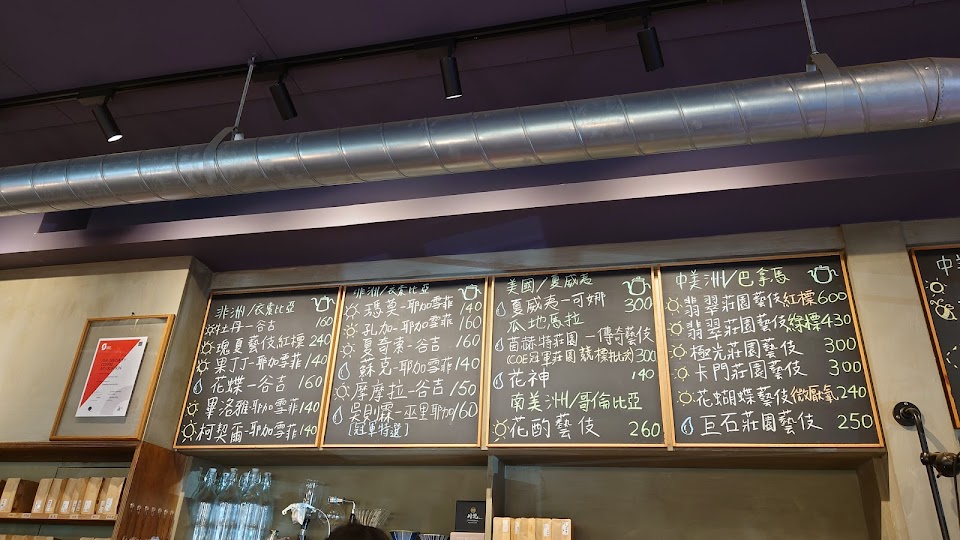 非洲/衣索比亞
牡丹-谷吉 160
瑰夏藝伎紅標 240
果丁丁-耶加雪菲 140
花蝶-谷吉 160
畢洛雅-耶加雪菲 140
柯契爾-耶加雪菲 140
非洲/衣索比亞
瑪英-耶加雪菲 140
孔加-耶加雪菲 160
夏奇索-谷吉 160
蘇兒-耶加雪菲 140
摩摩拉-谷吉 150
吳則霖-巫里耶加 160
[冠軍特選]
美國/夏威夷
夏威夷-可娜 300
瓜地馬拉
茵赫特莊園-傳奇藝伎
(COE冠軍莊園 競標批次) 300
花神 140
南美洲/哥倫比亞
花酌藝伎 260
中美洲/巴拿馬
翡翠莊園藝伎紅標 600
翡翠莊園藝伎綠標 430
極光莊園藝伎 300
卡門莊園藝伎 300
花蝴蝶藝伎微厭氧 240
巨石莊園藝伎 250
中美